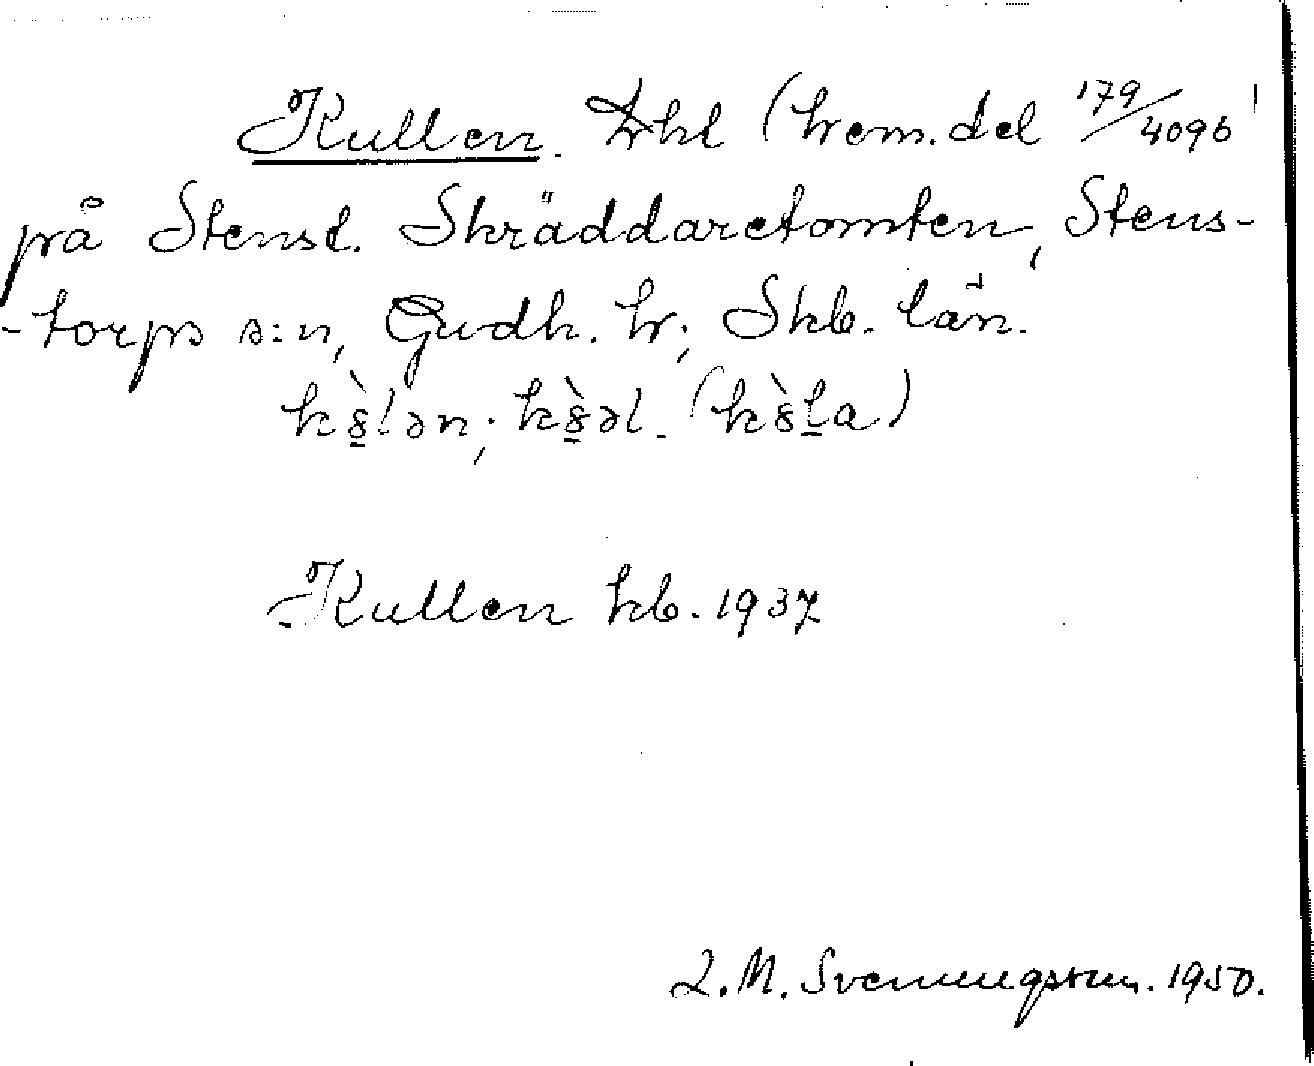 Kullen. Lht (hem.del 179/4096)
på Stenst. Skräddaretomten, Stens-
-torps s:n, Gudh. hr; Skb. län.
kù̱lən; kù̱əl. (kù̱ḻa)
Kullen kb. 1937
L.M. Svenungsson. 1950.